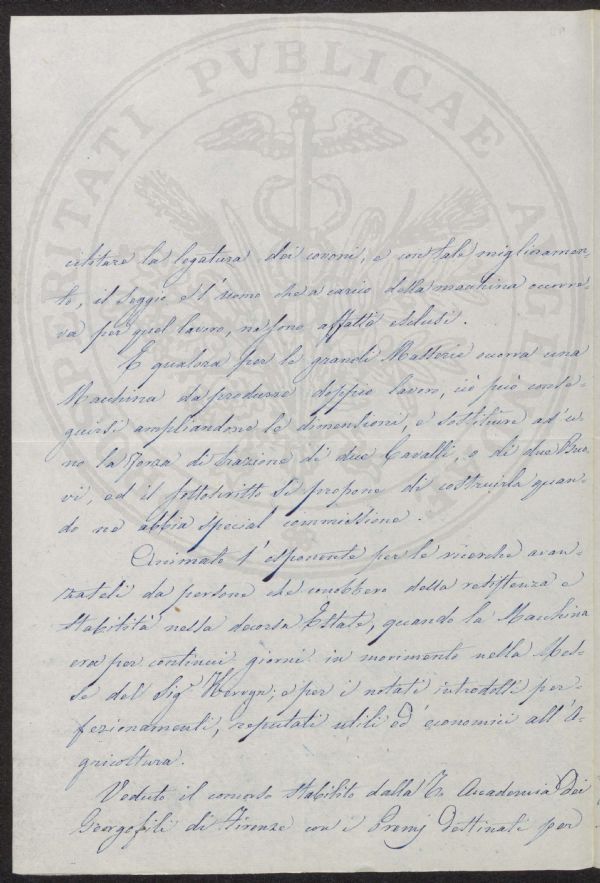 PROSPERITATI PVBLICAE AVGENDAE
cilitare la legatura dei covoni, e con tale miglioramen-
to, il seggio e l'uomo che a carico della macchina occorre-
va per quel lavoro, ne sono affatto esclusi.
E qualora per le grandi Mattorie occorra una
Macchina da produrre doppio lavoro, ciò può conse-
guirsi ampliandone le dimensioni, e sostituire ad'u-
no la Forza di trazione di due Cavalli, o di due Buo-
vi, ed il sottoscritto si propone di costruirla quan-
do ne abbia special commissione.
Animato l'esponente per le ricerche avan-
zateli da persone che conobbero della resistenza e
stabilità nella decorsa Estate, quando la Macchina
era per continui giorni in movimento nella Mes-
se del Sig.r; e per i notati introdotti per-
fezionamenti, reputati utili ed'economici all'A-
gricoltura.
Veduto il concorso stabilito dalla Accademia Dei
Georgofili di Firenze con i Premj destinati per